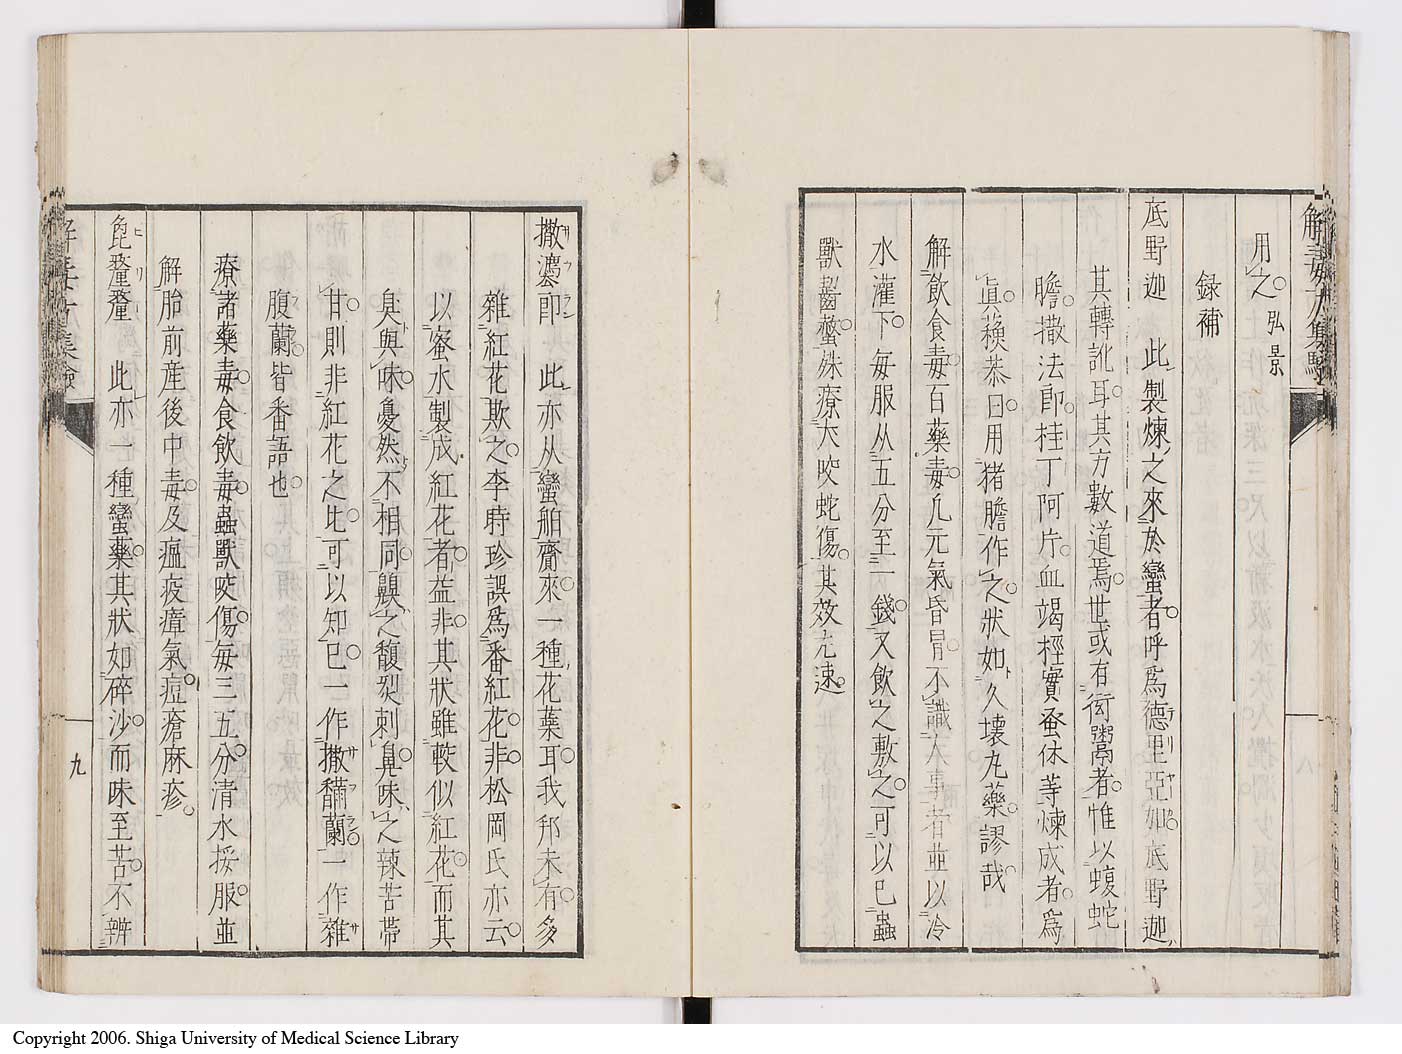 用之弘景
録補
底野迦 此製煉之來於蠻者呼爲德里亞如底野迦
其轉訛耳其方數道焉世或有衒鬻者惟以蝮蛇
膽撒法郎桂丁阿片血竭樫實蚤休等煉成者爲
眞䅣恭曰用猪膽作之狀如久壞丸藥謬哉
解飲食毒百藥毒凡元氣昏冒不識人事者並以冷
水灌下每服从五分至一錢又飲之敷之可以已蟲
獸齧螫殊療犬咬蛇傷其效尤速
撒馮郎 此亦从蠻舶齎來一種花葉耳我邦未有多
雜紅花欺之李時珍誤爲番紅花非松岡氏亦云
以蜜水製成紅花者益非其狀雖較似紅花而其
臭與味戞然不相同齅之馥烈刺鼻味之辣苦帶
甘則非紅花之比可以知已一作撒馩蘭一作雜
腹蘭皆番語也
療諸藥毒食飲毒蟲獸咬傷每三五分清水挼服並
解胎前産後中毒及瘟疫瘴氣痘瘡麻疹
㲋釐釐 此亦一種蠻藥其狀如碎沙而味至苦不辨
九
Copyright 2006. Shiga University of Medical Science Library